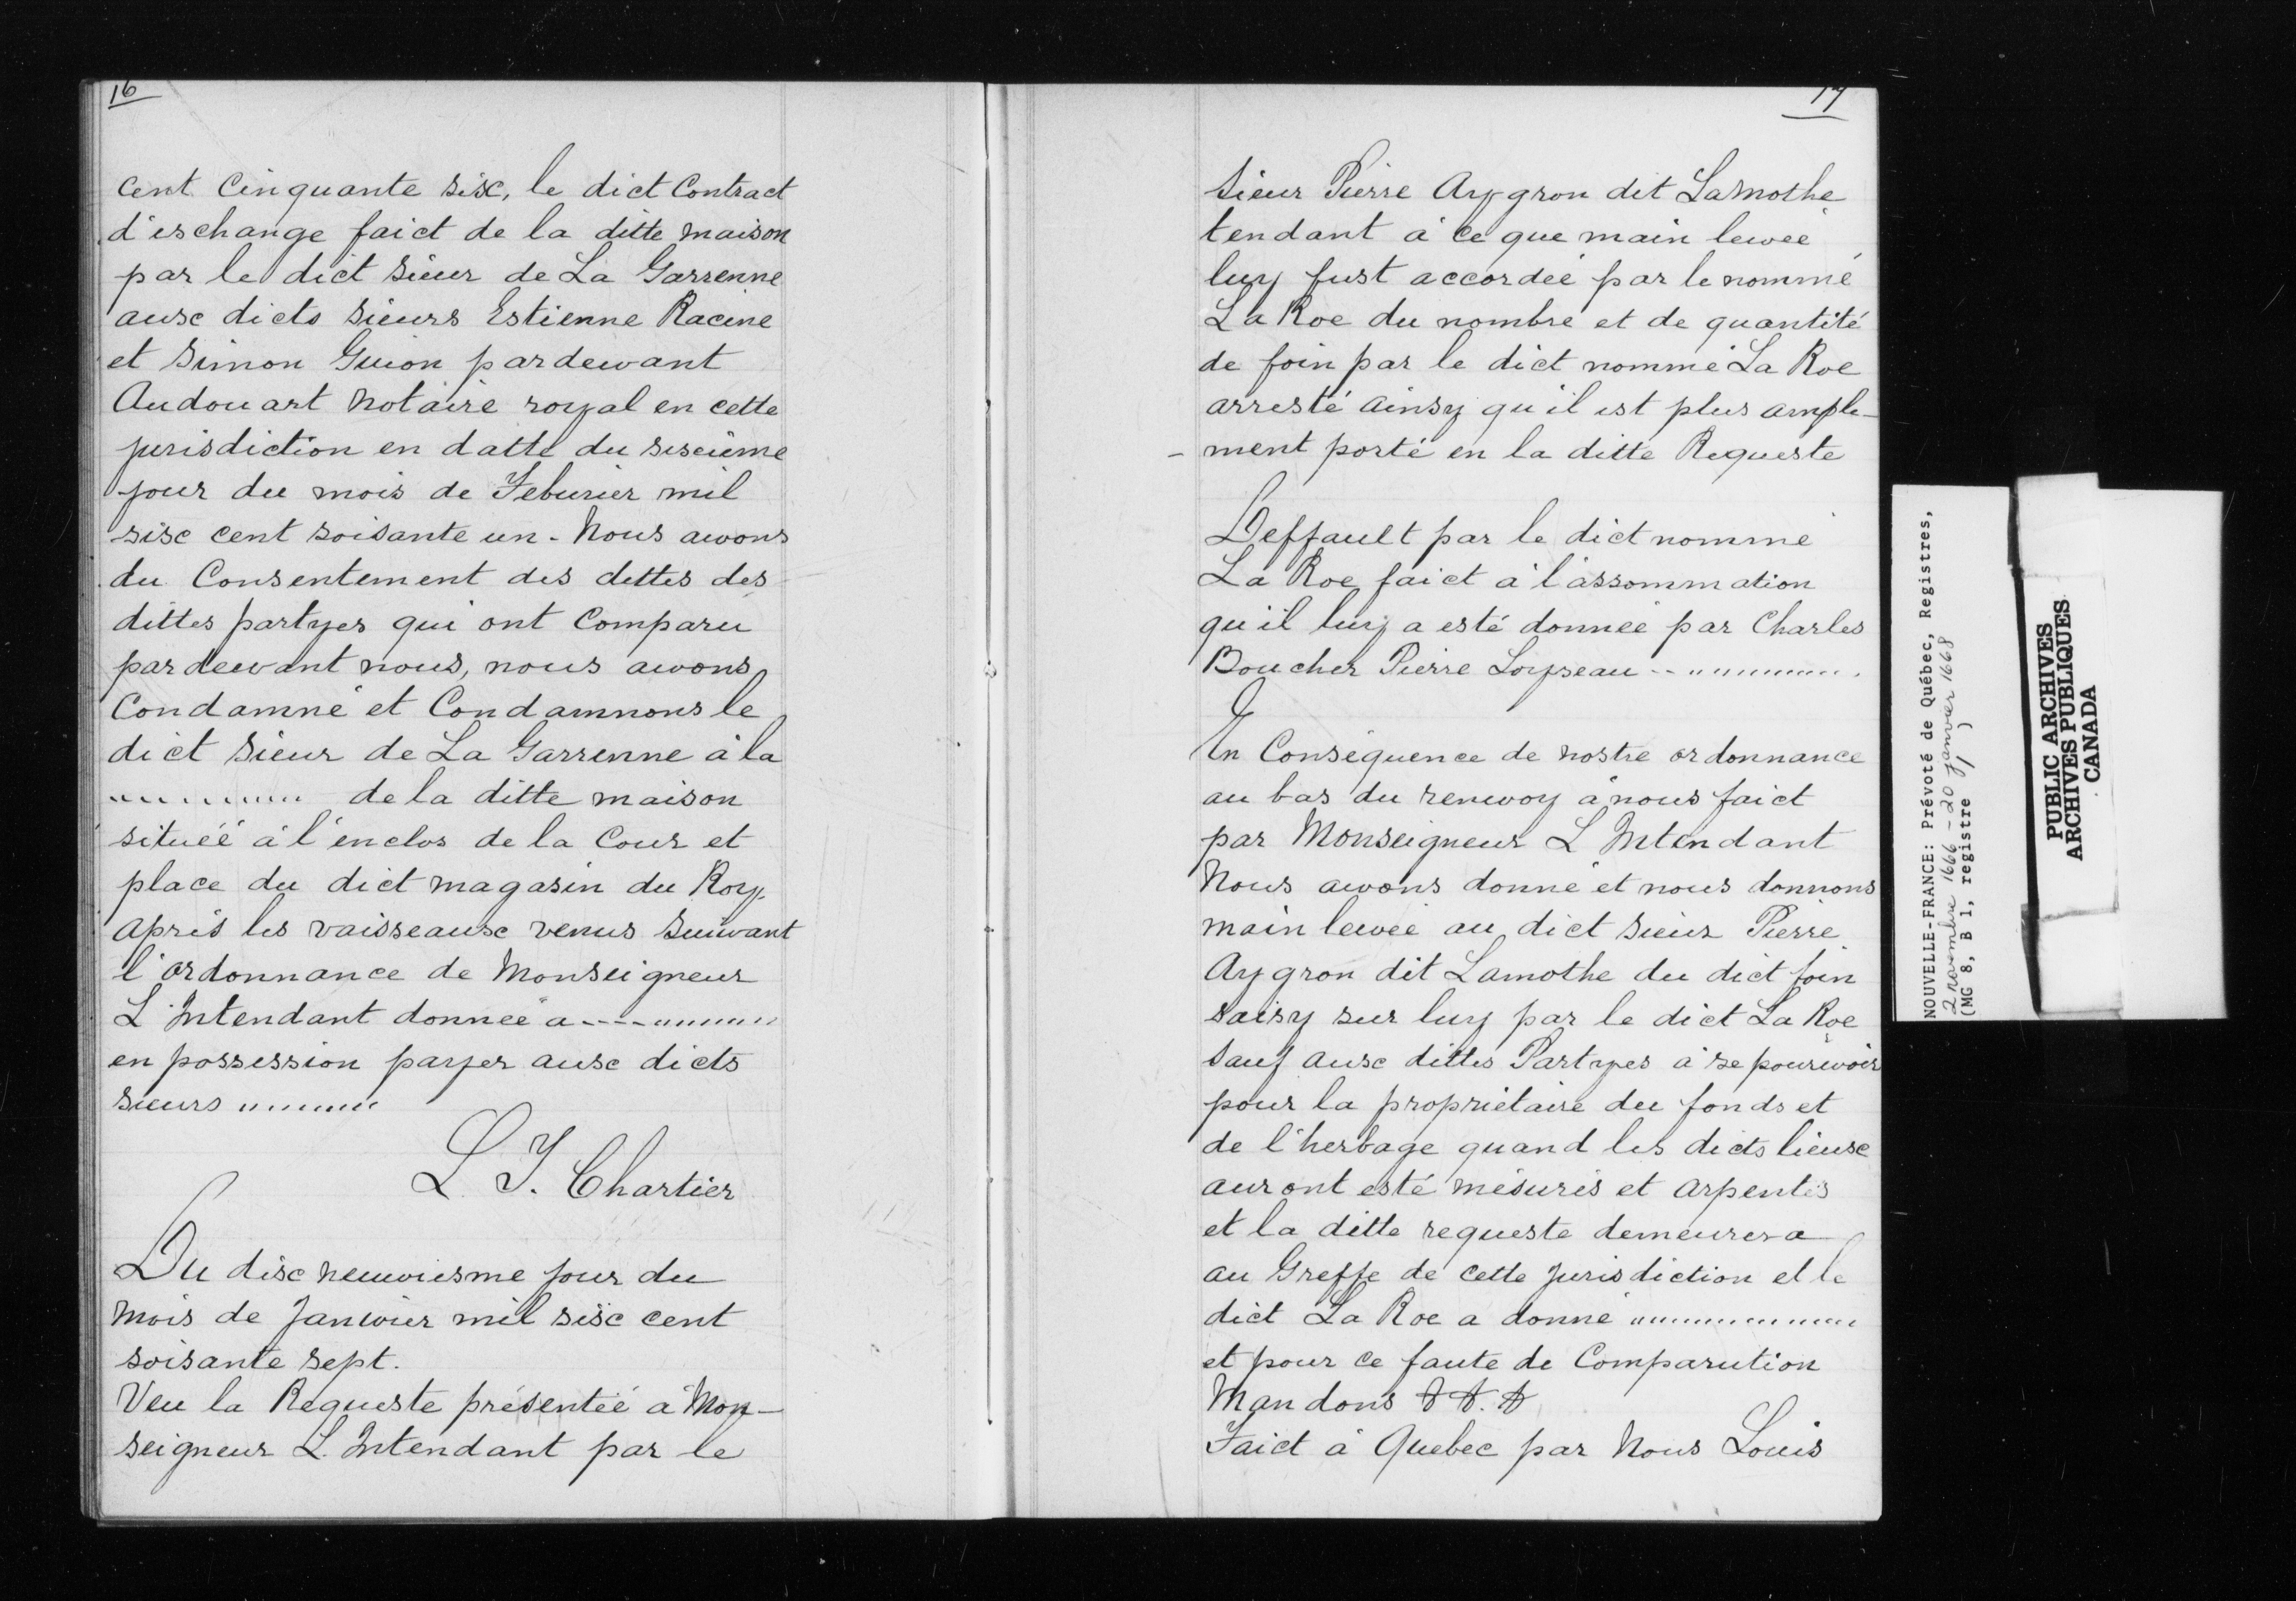 16
cent Cinquante sisc, le dict Contract
d'eschange faict de la ditte maison
par le dict sieur de La Garrenne
ausc dicts sieurs Estienne Racine
et Simon Guion pardewant
Audouart Notaire royal en cette
jurisdiction en datte du sisciême
jour du mois de Feburier mil
sisc cent soisante un. Nous awons
du Consentement des dettes des
dittes partyes qui ont Comparu
pardewant nous, nous awons
Condamné et Condamnons le
dict sieur de La Garrenne à la
........ de la ditte maison
situéé à l'enclos de la Cour et
place du dict magasin du Roy
après les vaisseausc venus suiwant
l'ordonnance de Monseigneur
L'Intendant donneé a ---........
en possession payer ausc dicts
sieurs ........
L. T. Chartier
Du disc neuwiesme jour du
Mois de Janwier mil sisc cent
soisante sept.
Veu la Requeste présentéé à Mon-
seigneur L. Intendant par le
17
sieur Pierre Aygron dit Lamothe
tendant à ce que main leweé
luy fust accordeé par le nommé
La Roe du nombre et de quantité
de foin par le dict nommé La Roe
arresté ainsy qu'il est plus ample-
- ment porté en la ditte Requeste
Deffault par le dict nommé
La Roe faict à l'assommation
qu'il luy a esté donneé par Charles
Boucher Pierre Loyseau --........
En Conséquence de nostre ordonnance
au bas du renwoy à nous faict
par Monseigneur L Intendant
Nous awons donné et nous donnons
main leweé au dict sieur Pierre
Aygron dit Lamothe du dict foin
saisy sur luy par le dict La Roe
sauf ausc dittes Partyes à se pourwoir
pour la propriétaire du fonds et
de l'herbage quand les dicts lieusc
auront esté mésurés et arpentés
et la ditte requeste demeurera
au Greffe de cette jurisdiction et le
dict La Roe a donné ............
et pour ce faute de Comparution
Mandons
Faict à Quebec par Nous Louis
NOUVELLE-FRANCE: Prévoté de Québec, Registres,
2 novembre 1666 - 20 janvier 1668
(MG 8, B 1, registre 1)
PUBLIC ARCHIVES
ARCHIVES PUBLIQUES
CANADA